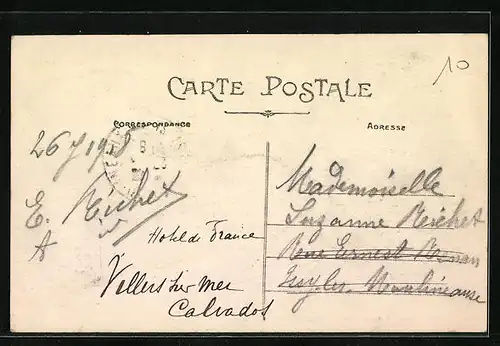 10
CARTE POSTALE
CORRESPONDANCE
ADRESSE
E. Richet
Hotel de France
Villers sur mer
Calvados
Mademoiselle
Suzanne Richet
Rue Ernest Renan
Moulineaux